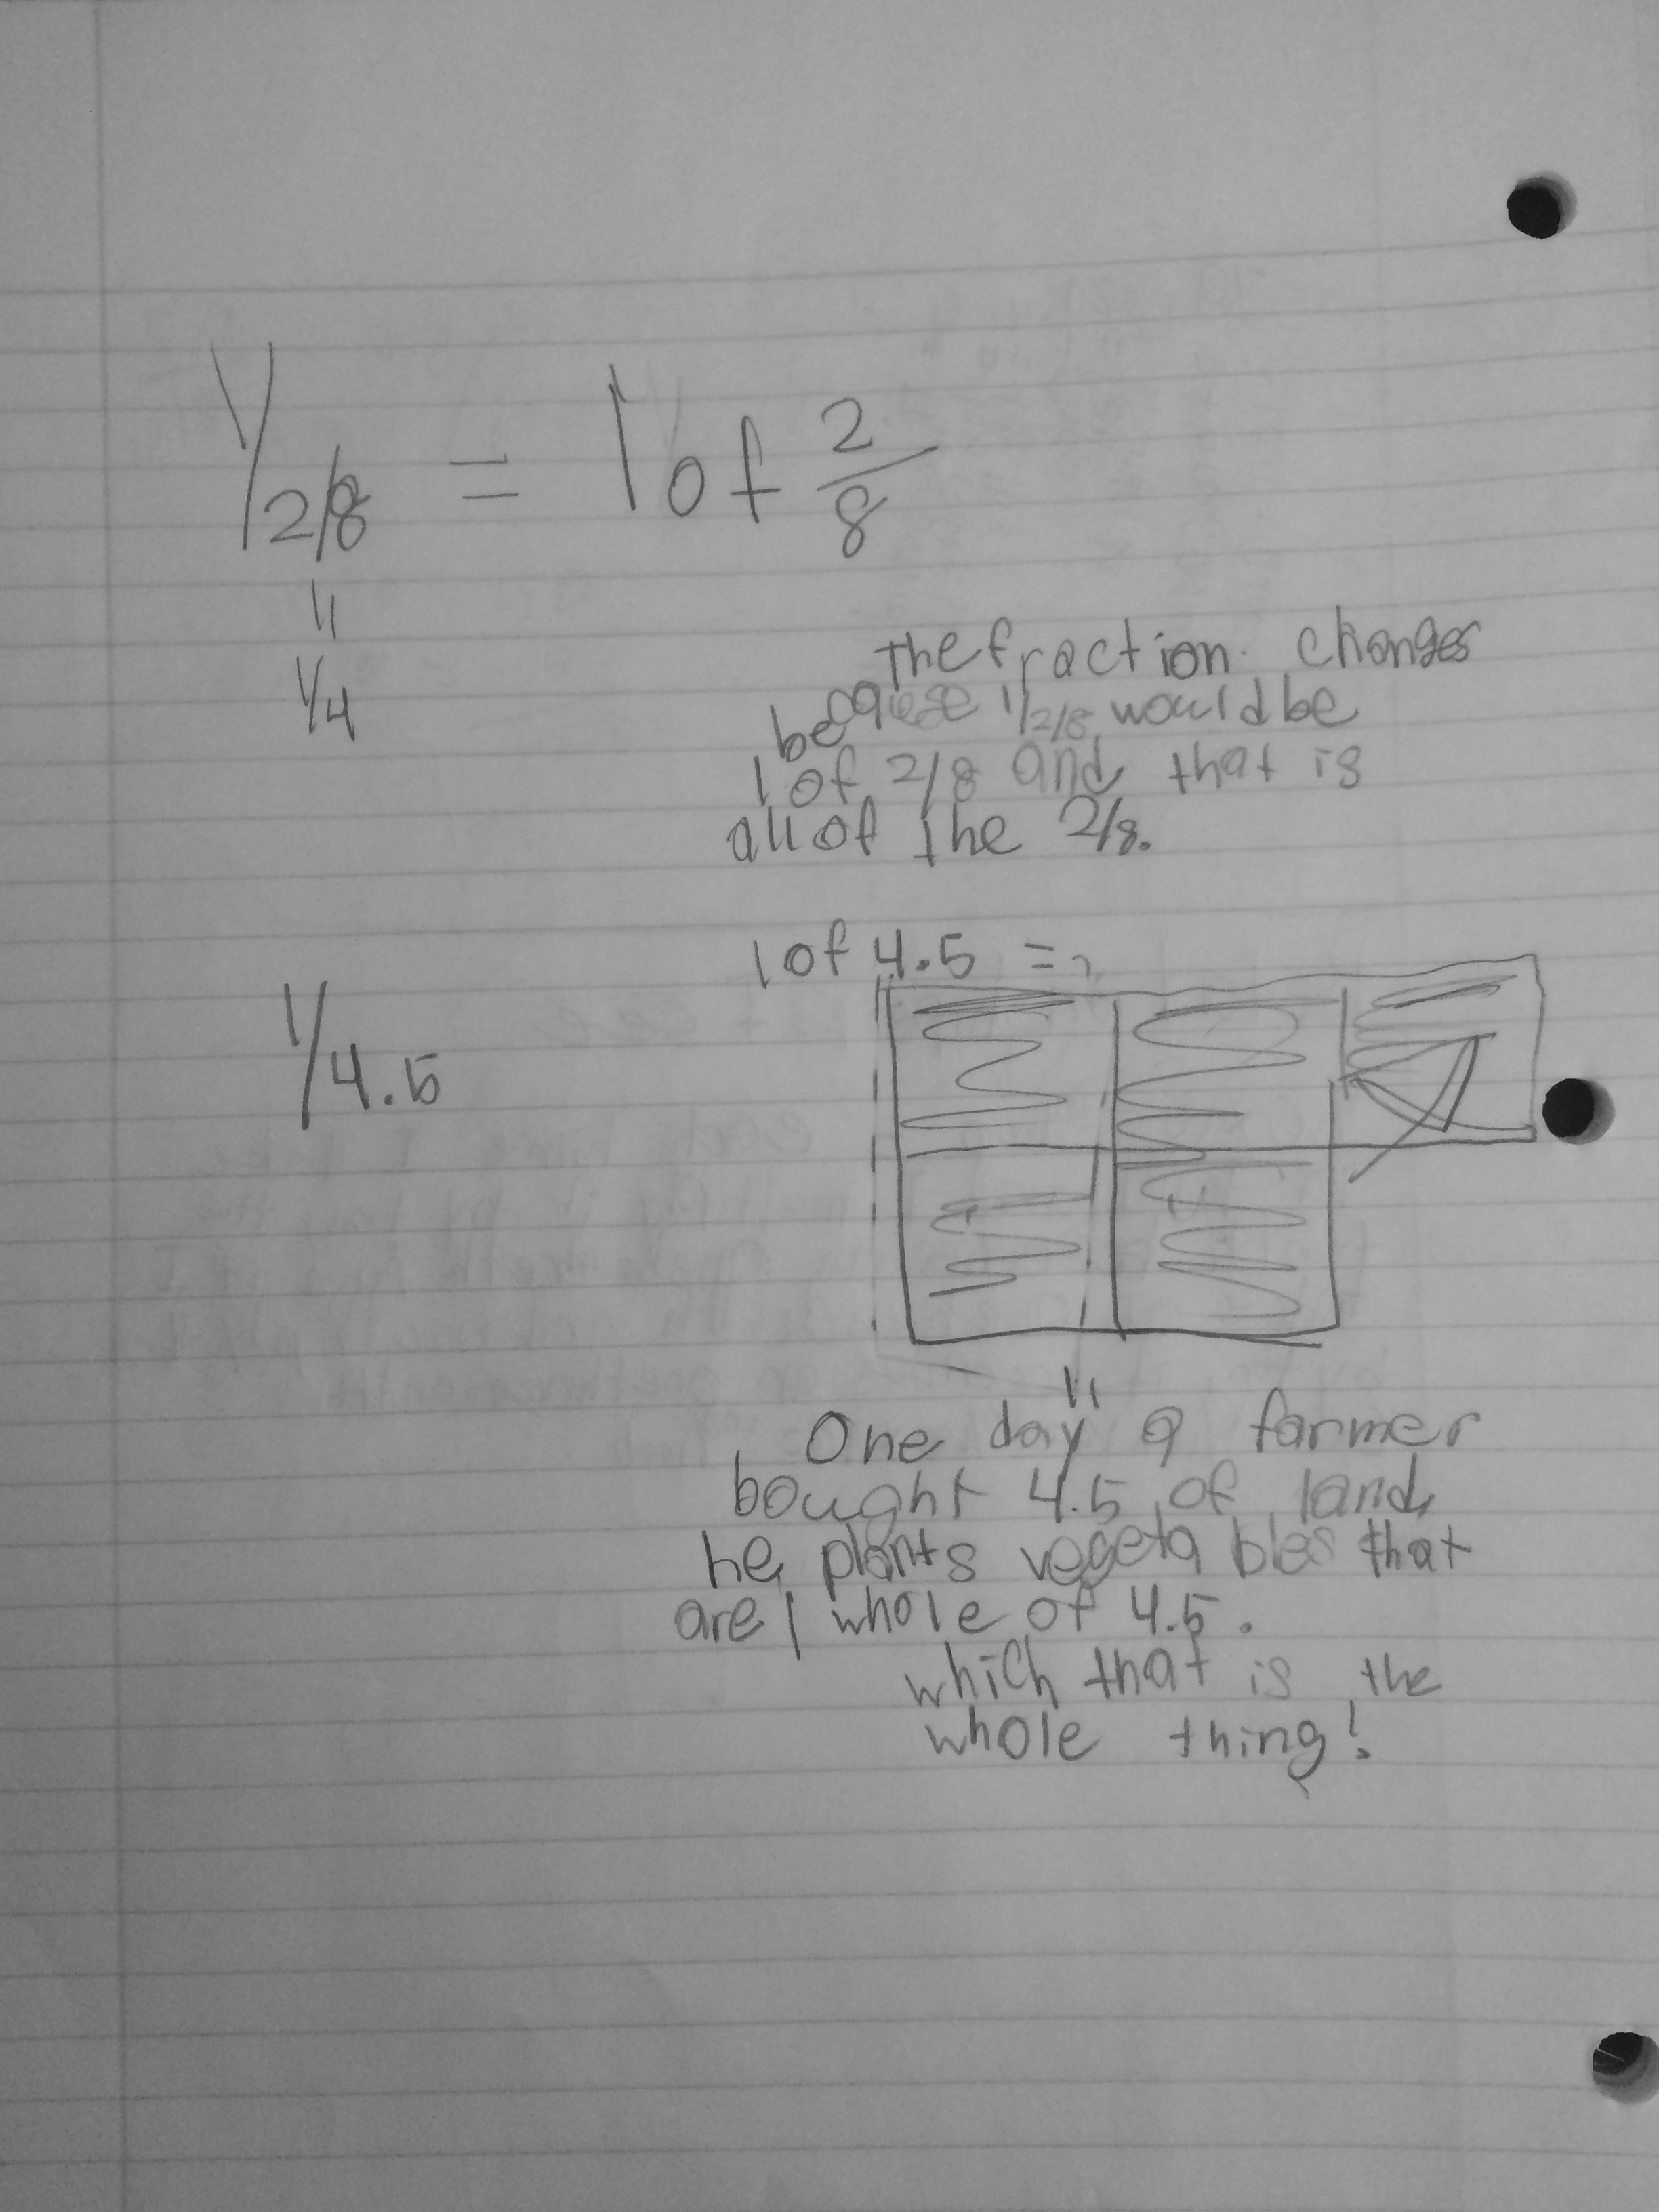 1/2/8 = 1 of 2/8
=
1/4
The fraction changes
because 1/2/8 would be
1 of 2/8 and that is
all of the 2/8.
1 of 4.5 =
1/4.5
=
One day a farmer
bought 4.5 of land,
he plants vegetables that
are 1 whole of 4.5.
which that is the
whole thing!